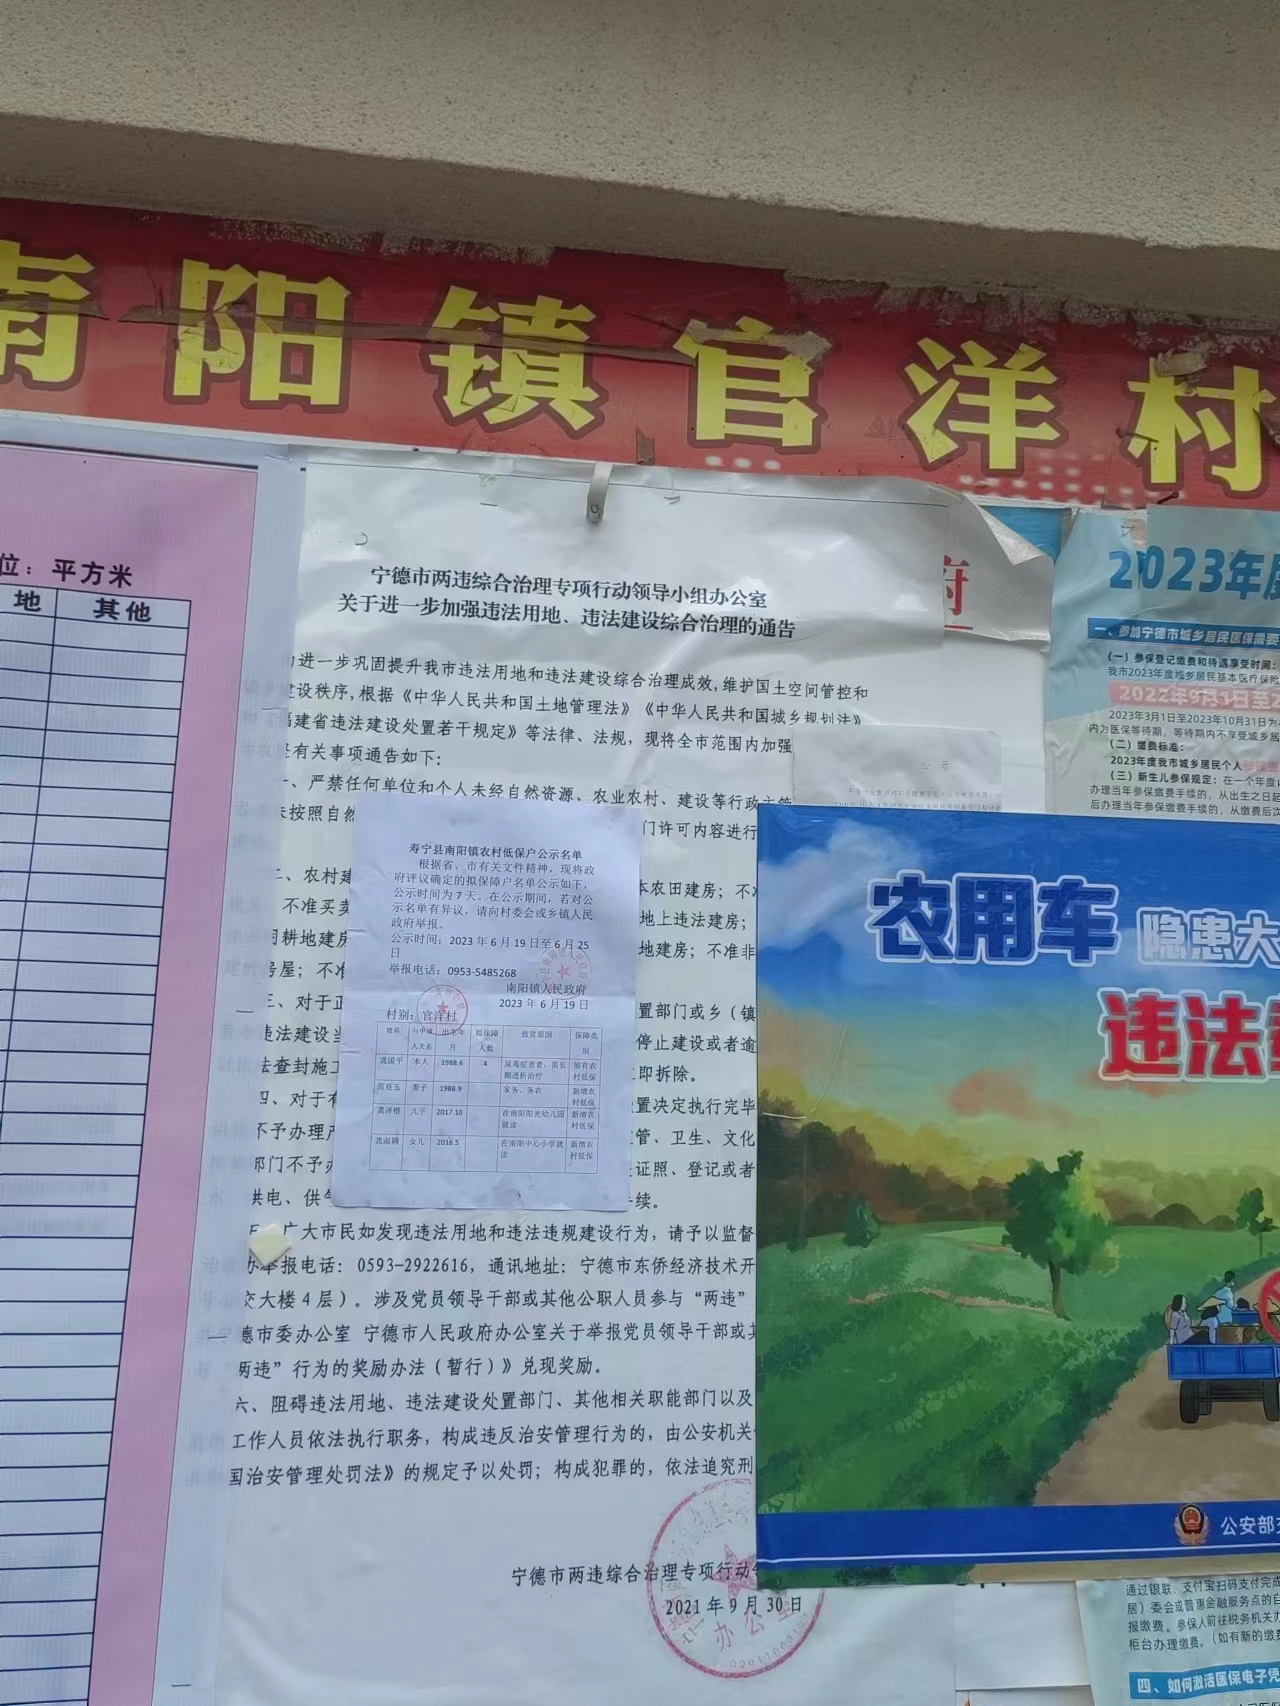 南阳镇官洋村
位：平方米
地 其他
宁德市两违综合治理专项行动领导小组办公室
关于进一步加强违法用地、违法建设综合治理的通告
进一步巩固提升我市违法用地和违法建设综合治理成效,维护国土空间管控和
建设秩序,根据《中华人民共和国土地管理法》《中华人民共和国城乡规划法》
福建省违法建设处置若干规定》等法律、法规，现将全市范围内加强
有关事项通告如下：
、严禁任何单位和个人未经自然资源、农业农村、建设等行政主管
未按照自然
门许可内容进行
二、农村建
本农田建房；不
不准买卖
地上违法建房；
用耕地建房
地建房；不准非
房屋；不准
三、对于正
置部门或乡（镇
违法建设当
停止建设或者逾
法查封施工
即拆除。
四、对于有
置决定执行完毕
不予办理产
管、卫生、文化
部门不予办
证照、登记或者
供电、供气
手续。
广大市民如发现违法用地和违法违规建设行为，请予以监督
举报电话：0593-2922616，通讯地址：宁德市东侨经济技术开
交大楼4层）。涉及党员领导干部或其他公职人员参与“两违”
德市委办公室 宁德市人民政府办公室关于举报党员领导干部或其
两违”行为的奖励办法（暂行）》兑现奖励。
六、阻碍违法用地、违法建设处置部门、其他相关职能部门以及
工作人员依法执行职务，构成违反治安管理行为的，由公安机关
国治安管理处罚法》的规定予以处罚；构成犯罪的，依法追究刑
宁德市两违综合治理专项行动
2021年9月30日
办公室
寿宁县南阳镇农村低保户公示名单
根据省、市有关文件精神，现将政
府评议确定的拟保障户名单公示如下，
公示时间为7天。在公示期间，若对公
示名单有异议，请向村委会或乡镇人民
政府举报。
公示时间：2023年6月19日至6月25
日
举报电话：0953-5485268
南阳镇人民政府
2023年6月19日
村别：官洋村
姓名 与申请人关系 出生年月 拟保障人数 致贫原因 保障类别
龚国平 本人 1988.6 4 尿毒症患者，需长期透析治疗 原有农村低保
范良玉 妻子 1988.9 家务、务农 新增农村低保
龚泽楷 儿子 2017.10 在南阳阳光幼儿园就读 新增农村低保
龚淑颖 女儿 2016.5 在南阳中心小学就读 新增农村低保
公示
府
2023年度
一、参加宁德市城乡居民医保需要
（一）参保登记缴费和待遇享受时间：
我市2023年度城乡居民基本医疗保险
2022年9月1日至2
2023年3月1日至2023年10月31日为
内为医保等待期，等待期内不享受城乡居
（二）缴费标准：
2023年度我市城乡居民个人
（三）新生儿参保规定：在一个年度内
办理当年参保缴费手续的，从出生之日起
后办理当年参保缴费手续的，从缴费后次
农用车 隐患大
违法
公安部交
通过银联、支付宝扫码支付完成
居）委会或普惠金融服务点的自
报缴费。参保人前往税务机关办
柜台办理缴费。（如有新的缴费
四、如何激活医保电子凭